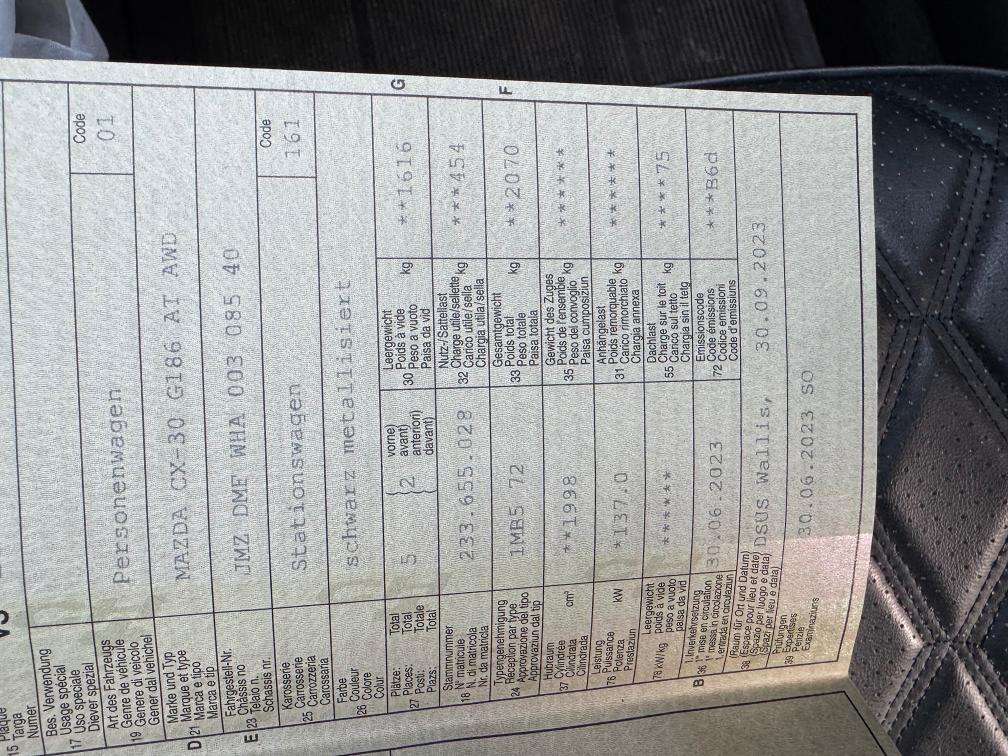 Plaque
15 Targa
Numer
Bes. Verwendung
Usage spécial
17 Uso speciale
Diever spezial
Code
Art des Fahrzeugs
Genre de véhicule
19 Genere di veicolo
Gener dal vehichel
Personenwagen
01
Marke und Typ
Marque et type
D 21 Marca e tipo
Marca e tip
MAZDA CX-30 G186 AT AWD
Fahrgestell-Nr.
Châssis no
E 23 Telaio n.
Schassis nr.
JMZ DMF WHA 003 085 40
Karosserie
Carrosserie
25 Carrozzeria
Carossaria
Stationswagen
Code
161
Farbe
Couleur
26 Colore
Colur
schwarz metallisiert
Plätze: Total
Places: Total
27 Posti: Totale
Plazs: Total
5 2
vorne)
avant)
anteriori)
davant)
Leergewicht
Poids à vide
30 Peso a vuoto kg
Paisa da vid
**1616
G
Stammnummer
N° matricule
18 N. di matricola
Nr. da matricla
233.655.028
Nutz-/Sattellast
Charge utile/sellette
32 Carico utile/sella kg
Chargia utila/sella
***454
Typengenehmigung
Réception par type
24 Approvazione del tipo
Approvaziun dal tip
1MB5 72
Gesamtgewicht
Poids total
33 Peso totale kg
Paisa totala
**2070
F
Hubraum
Cylindrée
37 Cilindrata cm³
Cilindrada
**1998
Gewicht des Zuges
Poids de l'ensemble
35 Peso del convoglio kg
Paisa cumposiziun
******
Leistung
Puissance
76 Potenza kW
Prestaziun
*137.0
Anhängelast
Poids remorquable
31 Carico rimorchiato kg
Chargia annexa
******
Leergewicht
poids à vide
78 kW/kg peso a vuoto
paisa da vid
******
Dachlast
Charge sur le toit
55 Carico sul tetto kg
Chargia sin il tetg
****75
1. Inverkehrsetzung
B 36 1re mise en circulation
1a messa in circolazione
1. entrada en circulaziun
30.06.2023
Emissionscode
Code émissions
72 Codice emissioni
Code d'emissiuns
***B6d
(Raum für Ort und Datum)
38 (Espace pour lieu et date)
(Spazio per luogo e data)
(Spazi per lieu e data)
DSUS Wallis, 30.09.2023
Prüfungen
Expertises
39 Perizie
Examinaziuns
30.06.2023 SO